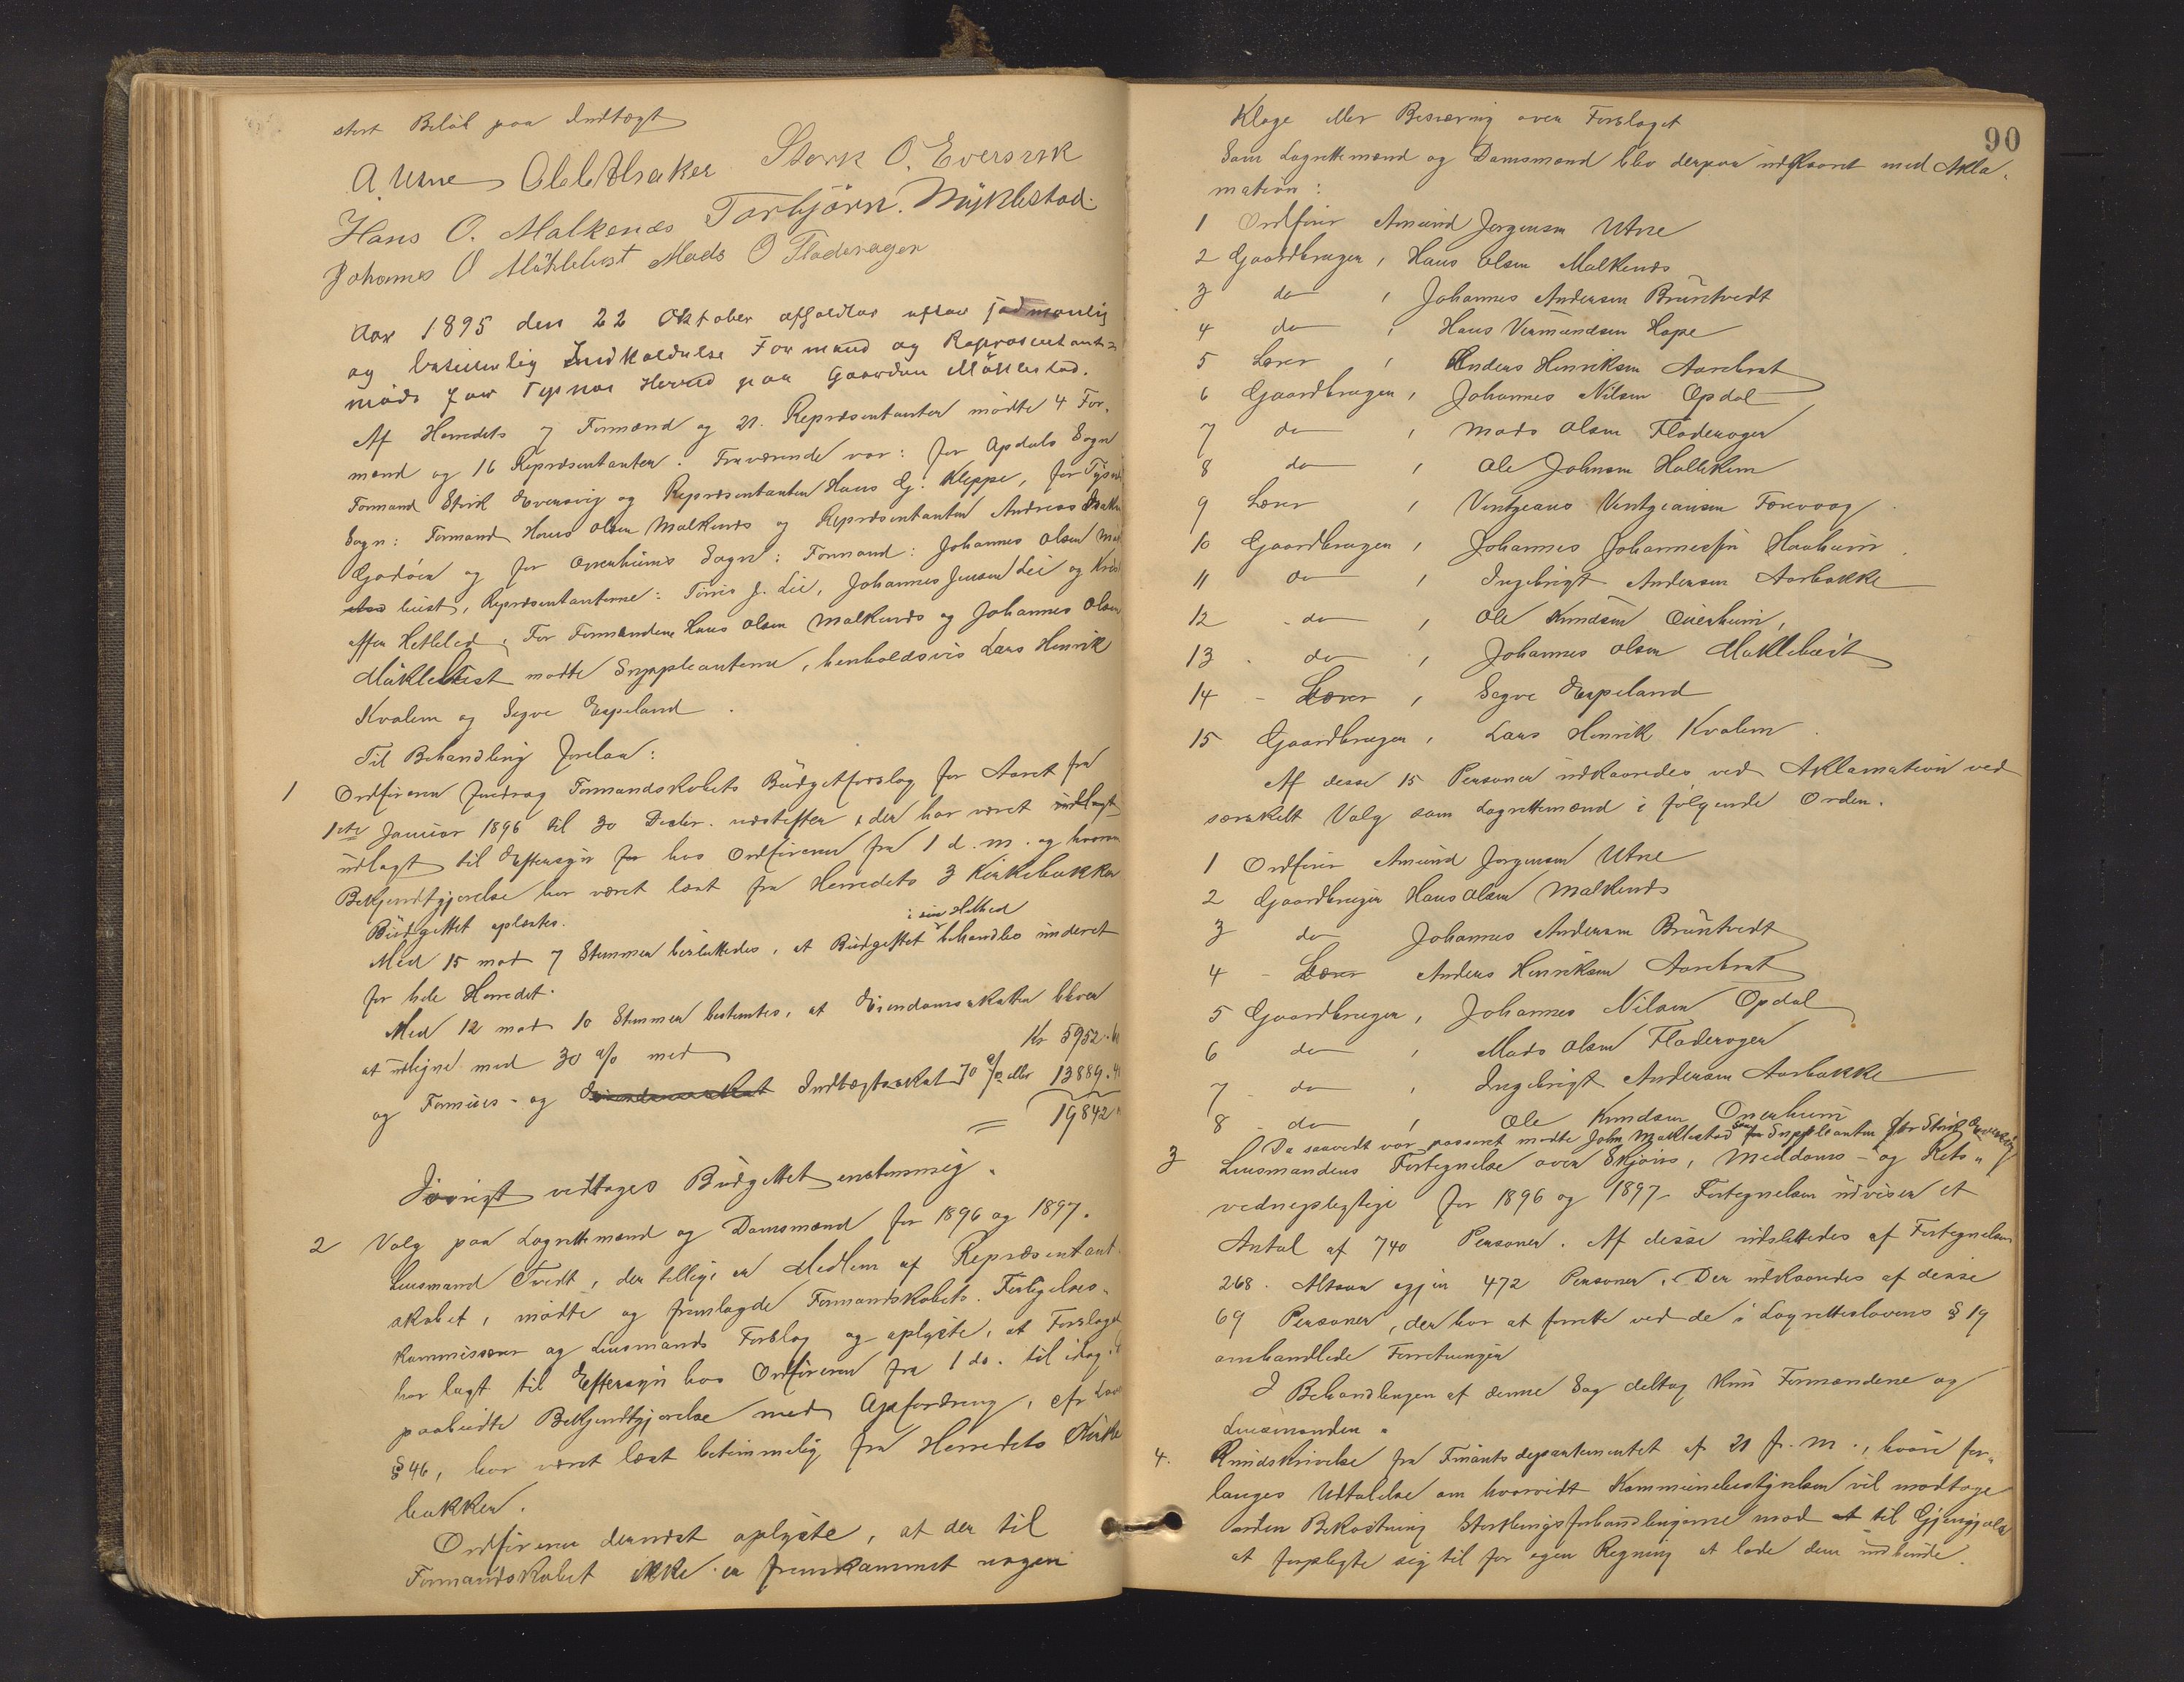 stort Beløb paa Indtægt
A Utne Ole O Aksaker Sterk O. Eversvik
Hans O. Malkenæs Torbjörn. Myklestad.
Johannes O Møklebust Mads O Fladerager
Aar 1895 den 22 Oktober afholdtes efter
og betimelig Indkaldelse Formand og Repræsentant-
møde for Tysnæs Herred paa Gaarden Møklestad.
Af Herredets 7 Formænd og 21. Repræsentanter mødte 4 For-
mænd og 16 Repræsentanter. Fraværende var: for Opdals Sogn
Formand Sterk Eversvig og Repræsentanten Hans G. Kleppe, for Tysnæs
Sogn: Formand Hans Olsen Malkenæs og Repræsentanten Andreas
Godøen og for Onerheims Sogn: Formand: Johannes Olsen
bust, Repræsentanterne: Tørris J. Lie, Johannes Jensen Lie og
offer Hetleled. For Formændene Hans Olsen Malkenæs og Johannes Olsen
Møklebust mødte Suppleanterne, henholdsvis Lars Henrik
Kvalem og Segve Espeland.
Til Behandling forelaa:
1 Ordføreren foredrog Formandskabets Budgetforslag for Aaret fra
1ste Januar 1896 til 30 Decbr. næstefter, der har været indlagt
udlagt til Eftersyn for hos Ordføreren fra 1 d. m. og hvorom
Bekjendtgjørelse har været læst fra Herredets 3 Kirkebakker
Budgettet oplæstes.
i sin Helhed
Med 15 mod 7 Stemmer besluttedes, at Budgettet behandles underet
for hele Herredet.
Med 12 mod 10 Stemmer bestemtes, at Eiendomsskatten bliver
at udligne med 30 % med Kr 5952.
og Formues- og Eiendomsskat Indtægtsskat 70 % eller 13889.
= 19842
Iøvrigt vedtoges Budgettet enstemmig.
2 Valg paa Lagrettemænd og Domsmænd for 1896 og 1897.
Lensmand Tvedt, der tillige er Medlem af Repræsentant-
skabet, mødte og fremlagde Formandskabets. Forligelses-
kommissærer og Lensmands Forslag og oplyste, at Forslaget
har lagt til Eftersyn hos Ordføreren fra 1 ds. til idag.
paabudte Bekjendtgjørelse med Opfordring, cfr Lov
§ 46, har været læst betimmelig fra Herredets Kirke
bakker.
Ordføreren dernæst oplyste, at der til
Formandskabet ikke er fremkommet nogen
90
Klage eller Besværing over Forslaget
Som Lagrettemænd og Domsmænd blev derpaa udkaaret med Akla-
mation:
1 Ordfører Amund Jørgensen Utne
2 Gaardbruger, Hans Olsen Malkenæs
3 do , Johannes Andersen Bruntvedt
4 do , Hans Vermundsen Hope
5 Lærer , Anders Henriksen Aarebrot
6 Gaardbruger, Johannes Nilsen Opdal
7 do , Mads Olsen Fladerager
8 do , Ole Johnsen Hallekem
9 Lærer , Ventzeans Ventzeansen Færevaag
10 Gaardbruger, Johannes Johannessen Hauheim.
11 do , Ingebrigt Andersen Aarbakke
12 - do , Ole Knudsen Onerheim,
13 . do , Johannes Olsen Møklebust
14 - Lærer , Segve Espeland
15 Gaardbruger, Lars Henrik Kvalem.
Af desse 15 Personer udkaaredes ved Aklamation ved
særskilt Valg som Lagrettemænd i følgende Orden.
1 Ordfører Amund Jørgensen Utne
2 Gaardbruger Hans Olsen Malkenæs
3 do Johannes Andersen Bruntvedt
4 - Lærer Anders Henriksen Aarebrot
5 Gaardbruger, Johannes Nilsen Opdal
6 do , Mads Olsen Fladerager
7 - do , Ingebrigt Andersen Aarbakke
8 - do , Ole Knudsen Onerheim
Da saavidt var passeret mødte John Møklestad som Suppleanten for Sterk Eversvig
3 Lensmandens Fortegnelse over Skjøns, Meddoms- og Rets-
vednepligtige for 1896 og 1897. Fortegnelsen udviser et
Antal af 740 Personer. Af desse udslettedes af Fortegnelsen
268. Altsaa igjen 472 Personer. Der udkaaredes af desse
69 Personer, der har at forrette ved de i Lagretteslovens § 19
omhandlede Forretninger
I Behandlingen af denne Sag deltog kun Formændene og
Lensmanden.
4. Rundskrivelse fra Finantsdepartementet af 21 f. M., hvori for-
langes Udtalelse om hvorvidt Kommunebestyrelsen vil modtage
uden Bekostning Storthingsforhandlingerne mod at til Gjengjæld
at forpligte sig til for egen Regning at lade dem indbinde.